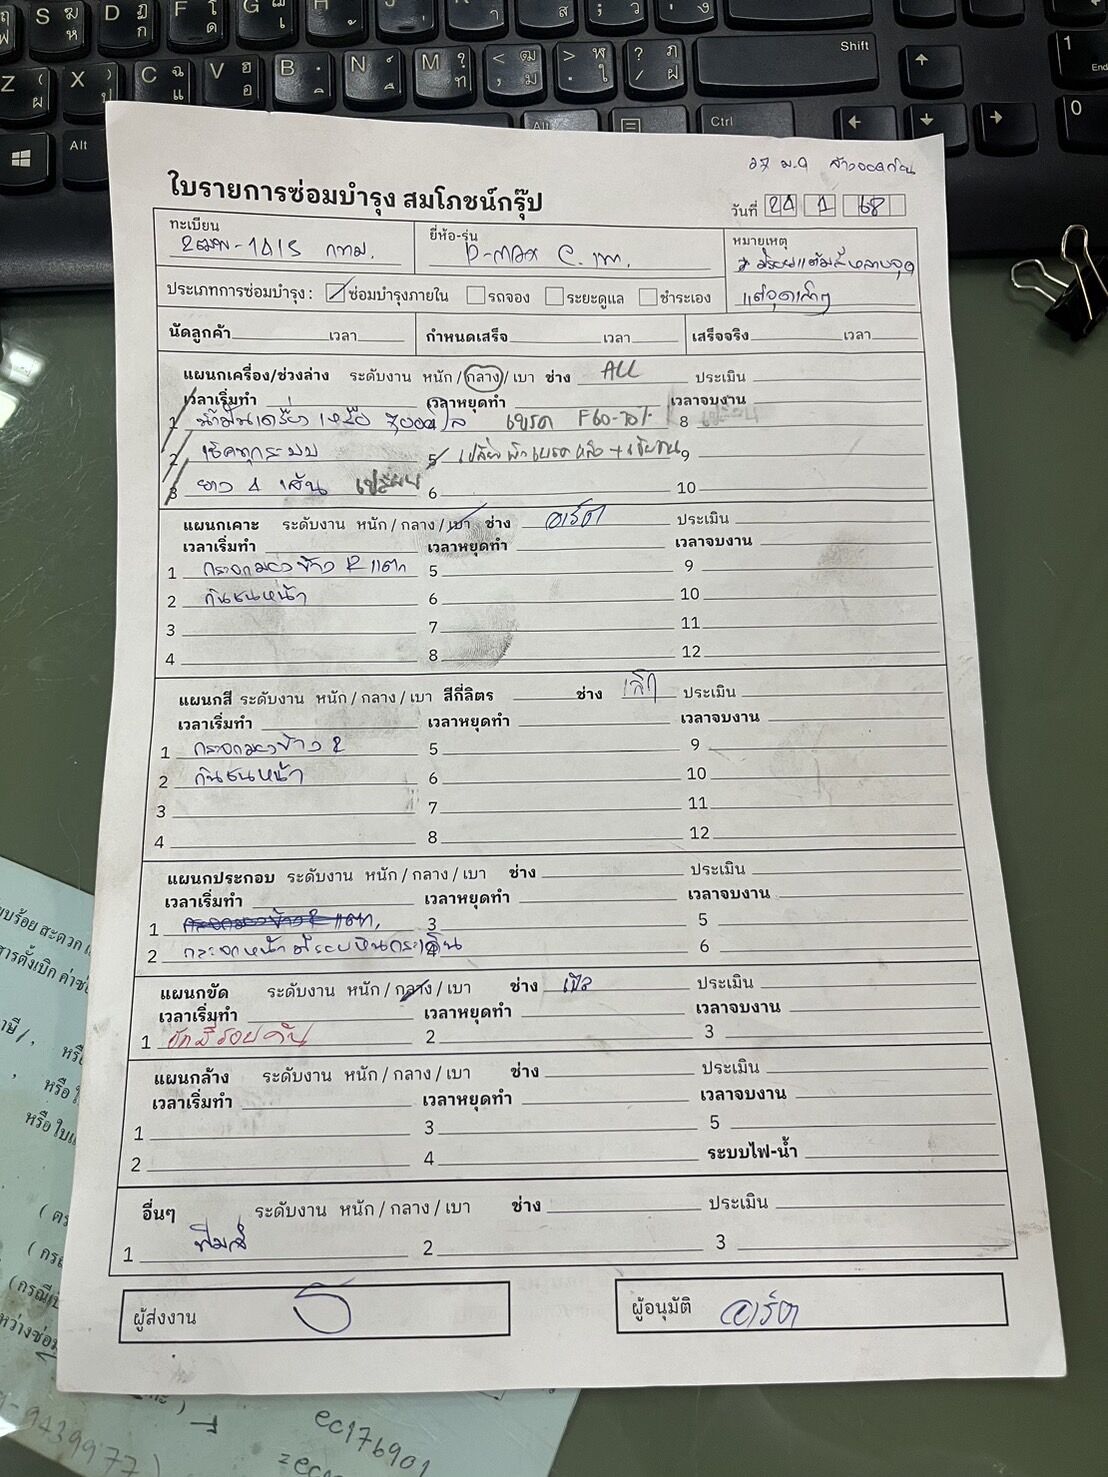 27 ม.ค
ใบรายการซ่อมบำรุง สมโภชน์กรุ๊ป
วันที่ 24 1 68
ทะเบียน ยี่ห้อ-รุ่น หมายเหตุ
1415 กทม. D-max
แต่จุดเล็กๆ
ประเภทการซ่อมบำรุง : ซ่อมบำรุงภายใน รถจอง ระยะดูแล ชำระเอง
นัดลูกค้า เวลา กำหนดเสร็จ เวลา เสร็จจริง เวลา
แผนกเครื่อง/ช่วงล่าง ระดับงาน หนัก / กลาง / เบา ช่าง ALL ประเมิน
เวลาเริ่มทำ เวลาหยุดทำ เวลาจบงาน
1 น้ำมันเครื่อง เหลือ โล เบรค F60-70% 8
2 เช็คทุกระบบ 5 เปลี่ยนผ้าเบรคหลัง 9
3 ยาง 4 เส้น เปลี่ยน 6 10
แผนกเคาะ ระดับงาน หนัก / กลาง / เบา ช่าง อาร์ต ประเมิน
เวลาเริ่มทำ เวลาหยุดทำ เวลาจบงาน
1 กระจกมองข้าง R แตก 5 9
2 กันชนหน้า 6 10
3 7 11
4 8 12
แผนกสี ระดับงาน หนัก / กลาง / เบา สีกี่ลิตร ช่าง เล็ก ประเมิน
เวลาเริ่มทำ เวลาหยุดทำ เวลาจบงาน
1 กระจกมองข้าง R 5 9
2 กันชนหน้า 6 10
3 7 11
4 8 12
แผนกประกอบ ระดับงาน หนัก / กลาง / เบา ช่าง ประเมิน
เวลาเริ่มทำ เวลาหยุดทำ เวลาจบงาน
1 กระจกมองข้าง R แตก, 3 5
2 กระจกหน้ามีรอยหินกระเด็น 4 6
แผนกขัด ระดับงาน หนัก / กลาง / เบา ช่าง ประเมิน
เวลาเริ่มทำ เวลาหยุดทำ เวลาจบงาน
1 ขัดสีรอบคัน 2 3
แผนกล้าง ระดับงาน หนัก / กลาง / เบา ช่าง ประเมิน
เวลาเริ่มทำ เวลาหยุดทำ เวลาจบงาน
1 3 5
2 4 ระบบไฟ-น้ำ
อื่นๆ ระดับงาน หนัก / กลาง / เบา ช่าง ประเมิน
1 ฟิล์ม 2 3
ผู้ส่งงาน ผู้อนุมัติ อาร์ต
ec176901